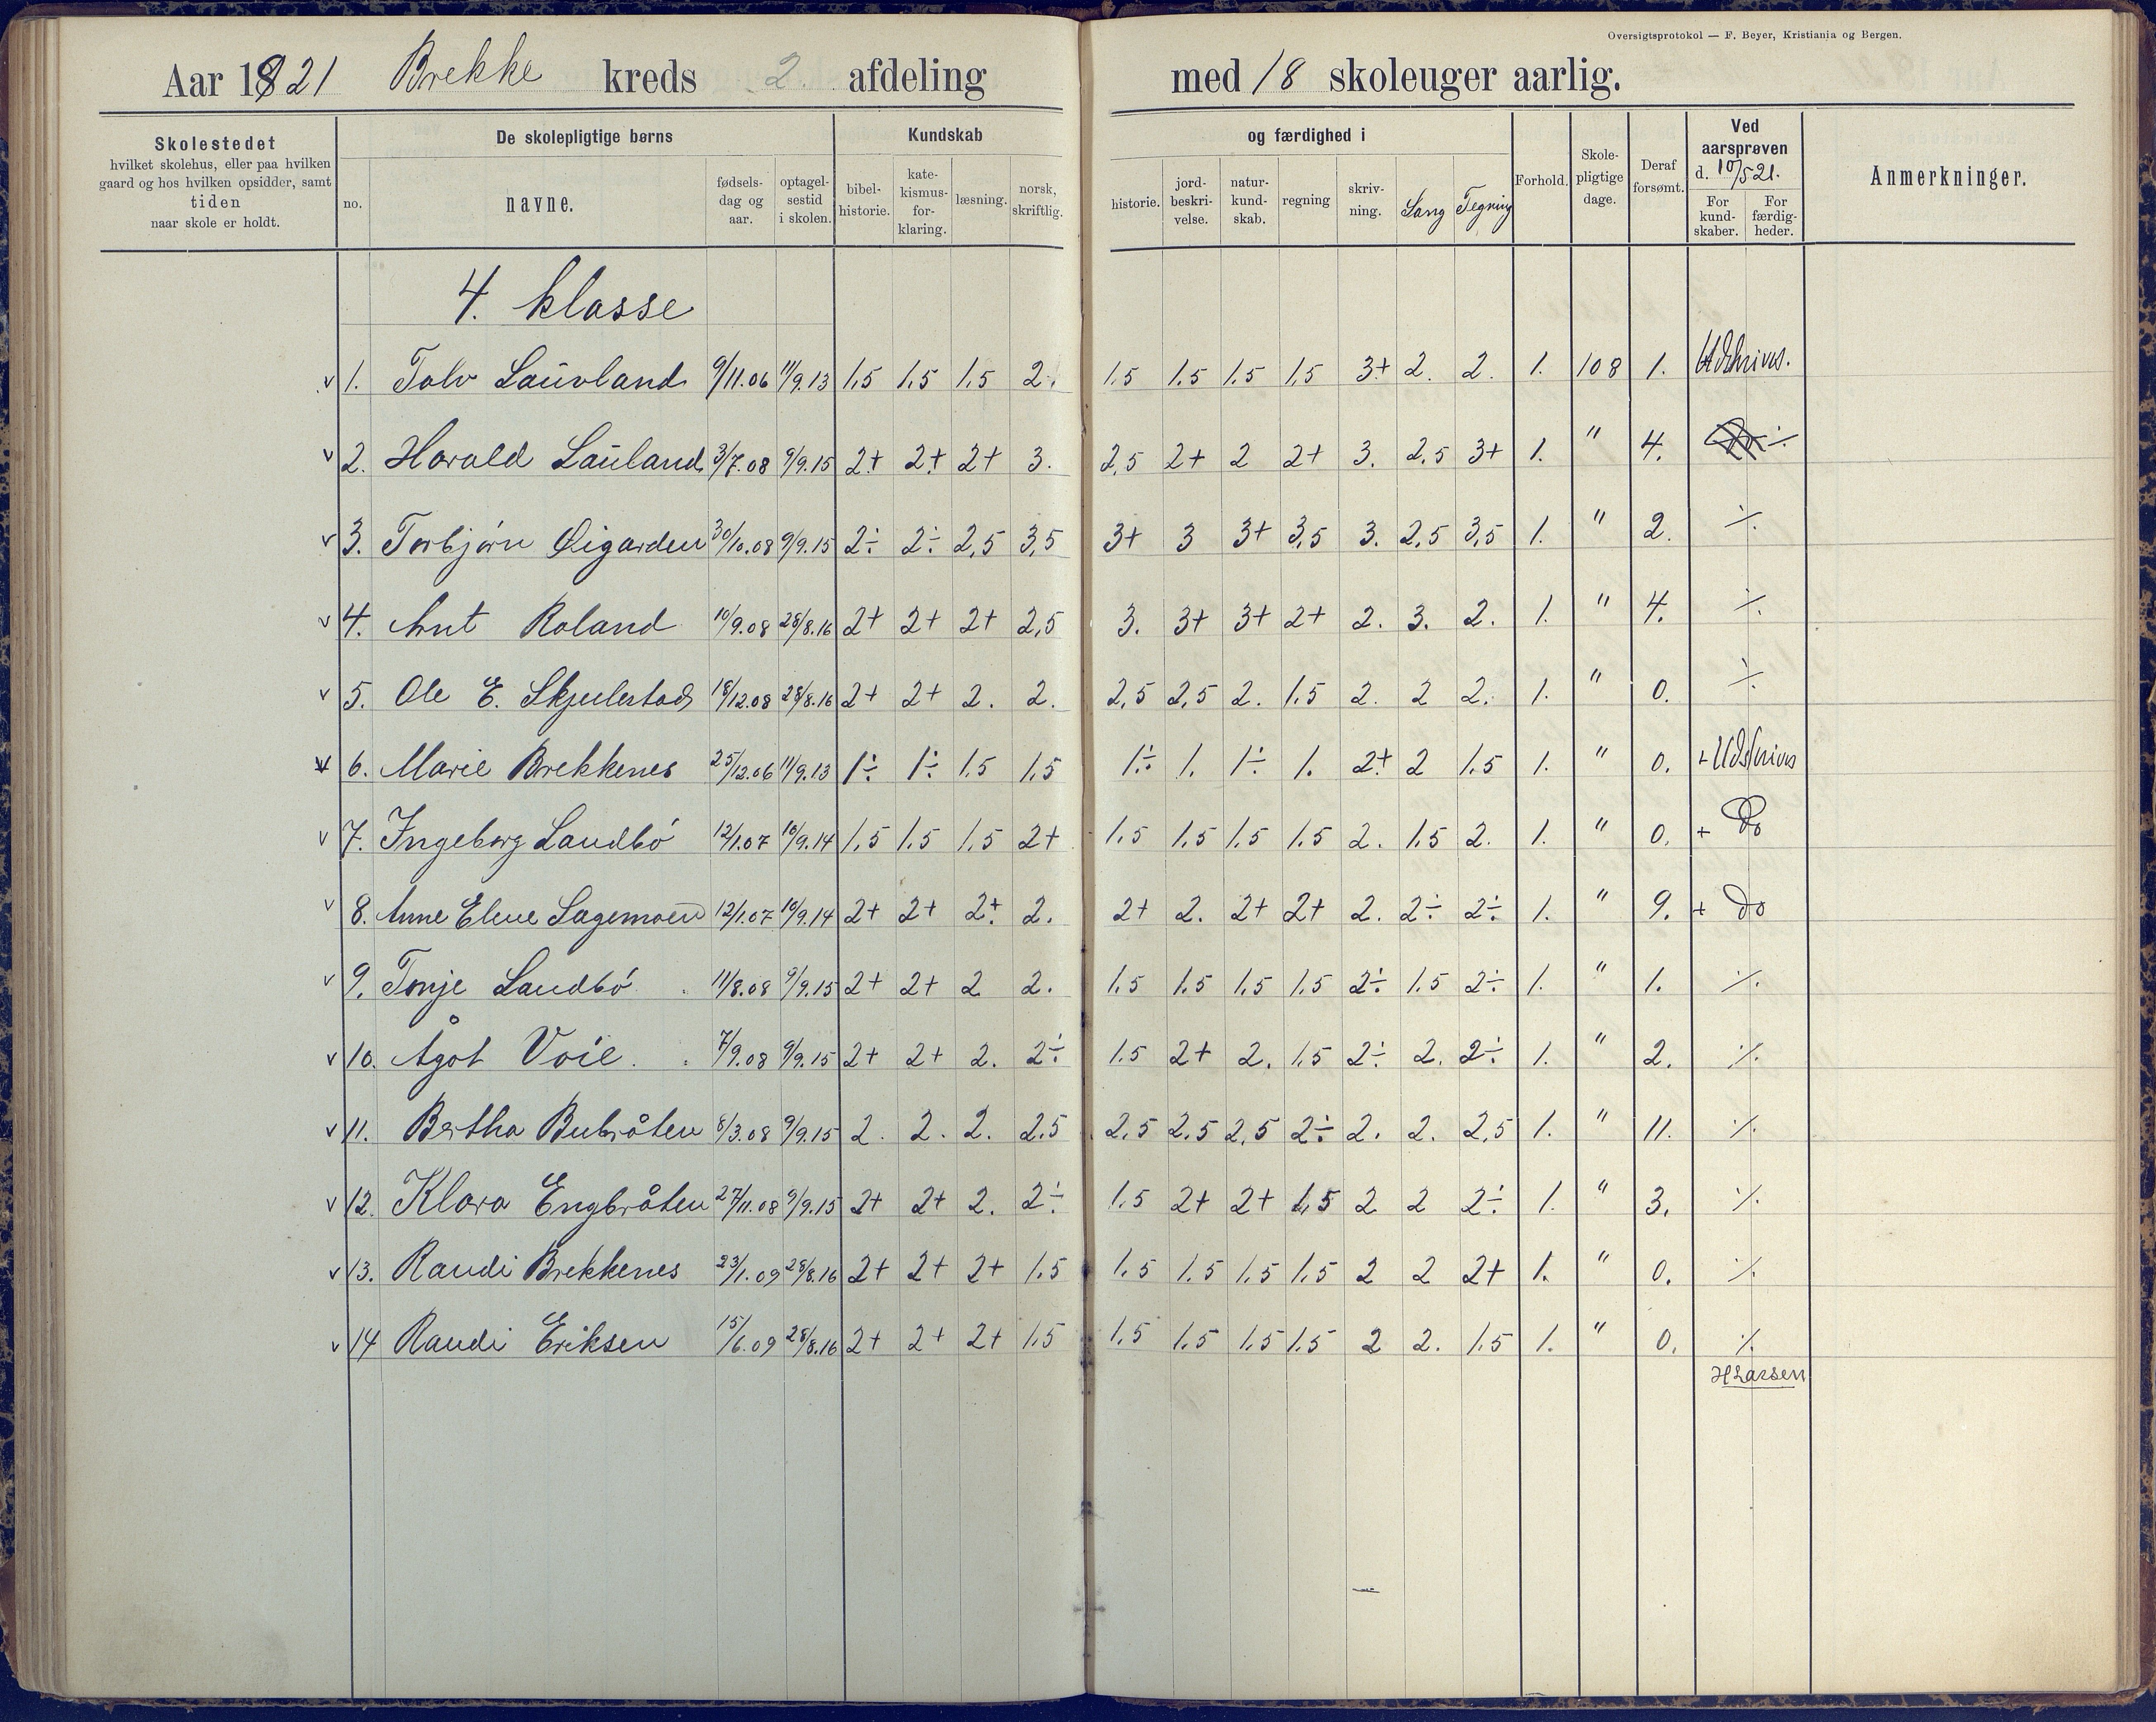 Oversigtsprotokol — F. Beyer, Kristiania og Bergen.
Aar 1921 Brekke kreds 2. afdeling med 18 skoleuger aarlig.
Skolestedet hvilket skolehus, eller paa hvilken gaard og hos hvilken opsidder, samt tiden naar skole er holdt.
De skolepligtige børns
no. navne. fødsels-dag og aar. optagel-sestid i skolen.
Kundskab og færdighed i
bibel-historie. kate-kismus-for-klaring. læsning. norsk, skriftlig. historie. jord-beskri-velse. natur-kund-skab. regning skriv-ning. Sang Tegning
Forhold. Skole-pligtige dage. Deraf forsømt. Ved aarsprøven d. 10/5 21. For kund-skaber. For færdig-heder. Anmerkninger.
4. klasse
v 1. Tolv Lauvland 9/11.06 11/9.13 1,5 1,5 1,5 2. 1.5 1.5 1.5 1.5 3+ 2. 2. 1. 108 1. Udskrives.
v 2. Harald Lauland 3/7.08 9/9.15 2+ 2+ 2+ 3. 2,5 2+ 2 2+ 3. 2,5 3+ 1. " 4. ÷
v 3. Torbjørn Øigarden 30/10.08 9/9.15 2÷ 2÷ 2,5 3,5 3+ 3 3+ 3,5 3. 2,5 3,5 1. " 2. ÷
v 4. Knut Roland 10/9.08 28/8.16 2+ 2+ 2+ 2,5 3. 3+ 3+ 2+ 2. 3. 2. 1. " 4. ÷
v 5. Ole E. Skjulestad 18/12.08 28/8.16 2+ 2+ 2. 2. 2,5 2,5 2. 1.5 2. 2 2. 1. " 0. ÷
v 6. Marie Brekkenes 25/12.06 11/9.13 1÷ 1÷ 1.5 1,5 1÷ 1. 1÷ 1. 2+ 2 1.5 1. " 0. + Udskrives
v 7. Ingeborg Landbö 12/1.07 10/9.14 1,5 1.5 1.5 2+ 1.5 1.5 1.5 1.5 2. 1.5 2. 1. " 0. + Do
v 8. Anne Elene Sagemoen 12/1.07 10/9.14 2+ 2+ 2+ 2. 2+ 2. 2+ 2+ 2. 2÷ 2÷ 1. " 9. + Do
v 9. Tonje Landbö 11/8.08 9/9.15 2+ 2+ 2 2. 1.5 1.5 1.5 1.5 2÷ 1.5 2÷ 1. " 1. ÷
v 10. Ågot Voie. 7/9.08 9/9.15 2+ 2+ 2. 2÷ 1.5 2+ 2. 1.5 2÷ 2. 2÷ 1. " 2. ÷
v 11. Bertha Bubråten 8/3.08 9/9.15 2. 2. 2. 2.5 2,5 2.5 2,5 2÷ 2. 2. 2,5 1. " 11. ÷
v 12. Klara Engbråten 27/11.08 9/9.15 2+ 2+ 2. 2÷ 1.5 2+ 2+ 1,5 2 2 2÷ 1. " 3. ÷
v 13. Randi Brekkenes 23/1.09 28/8.16 2+ 2+ 2+ 1.5 1.5 1.5 1.5 1.5 2 2 2+ 1. " 0. ÷
v 14 Randi Eriksen 15/6.09 28/8.16 2+ 2+ 2+ 1.5 1.5 1.5 1.5 1.5 2 2. 1.5 1. " 0. ÷
HLarsen